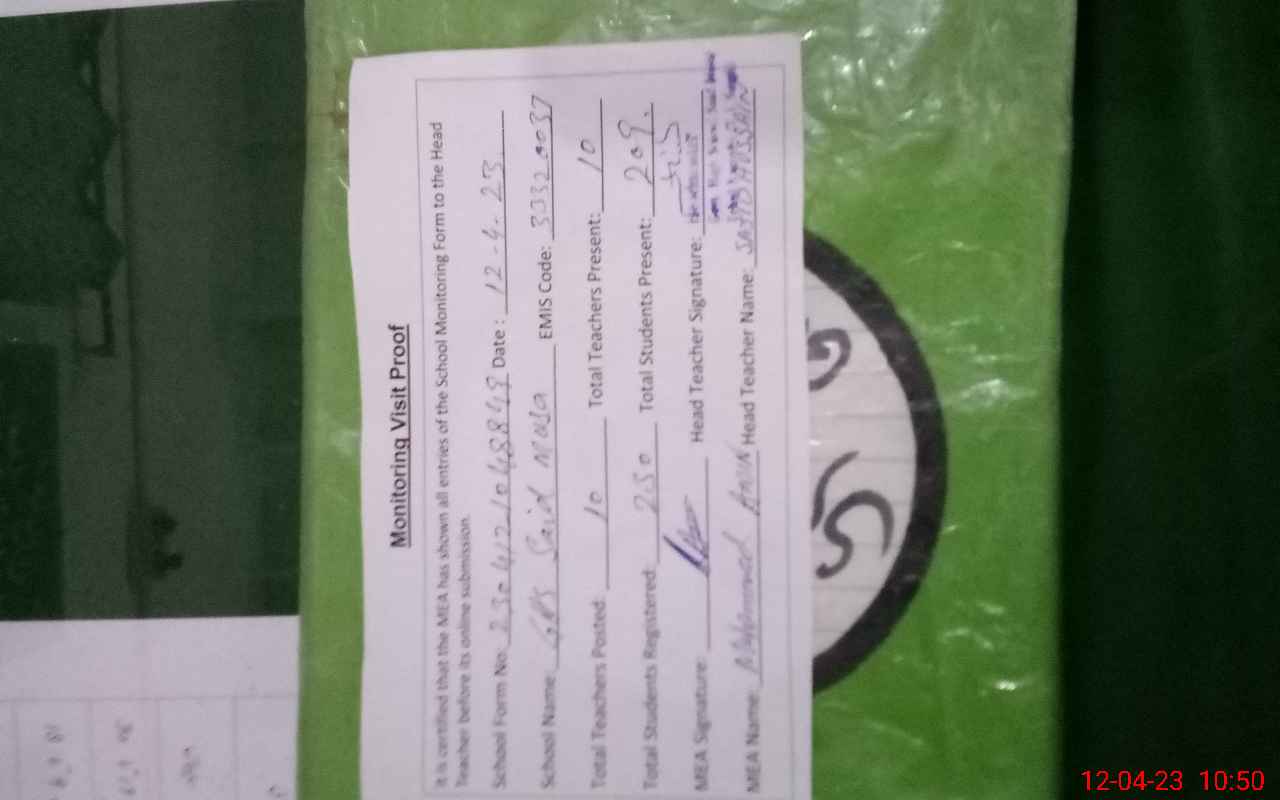 Monitoring Visit Proof
It is certified that the MEA has shown all entries of the School Monitoring Form to the Head
Teacher before its online submission.
School Form No: 2304121048849 Date : 12-4-23
School Name GPS Said Musa EMIS Code: 30320037
Total Teachers Posted: 10 Total Teachers Present: 10
Total Students Registered: 250 Total Students Present: 209
MEA Signature: Head Teacher Signature:
MEA Name: Muhammad Amin Head Teacher Name: SAJID HUSSAIN
12-04-23 10:50